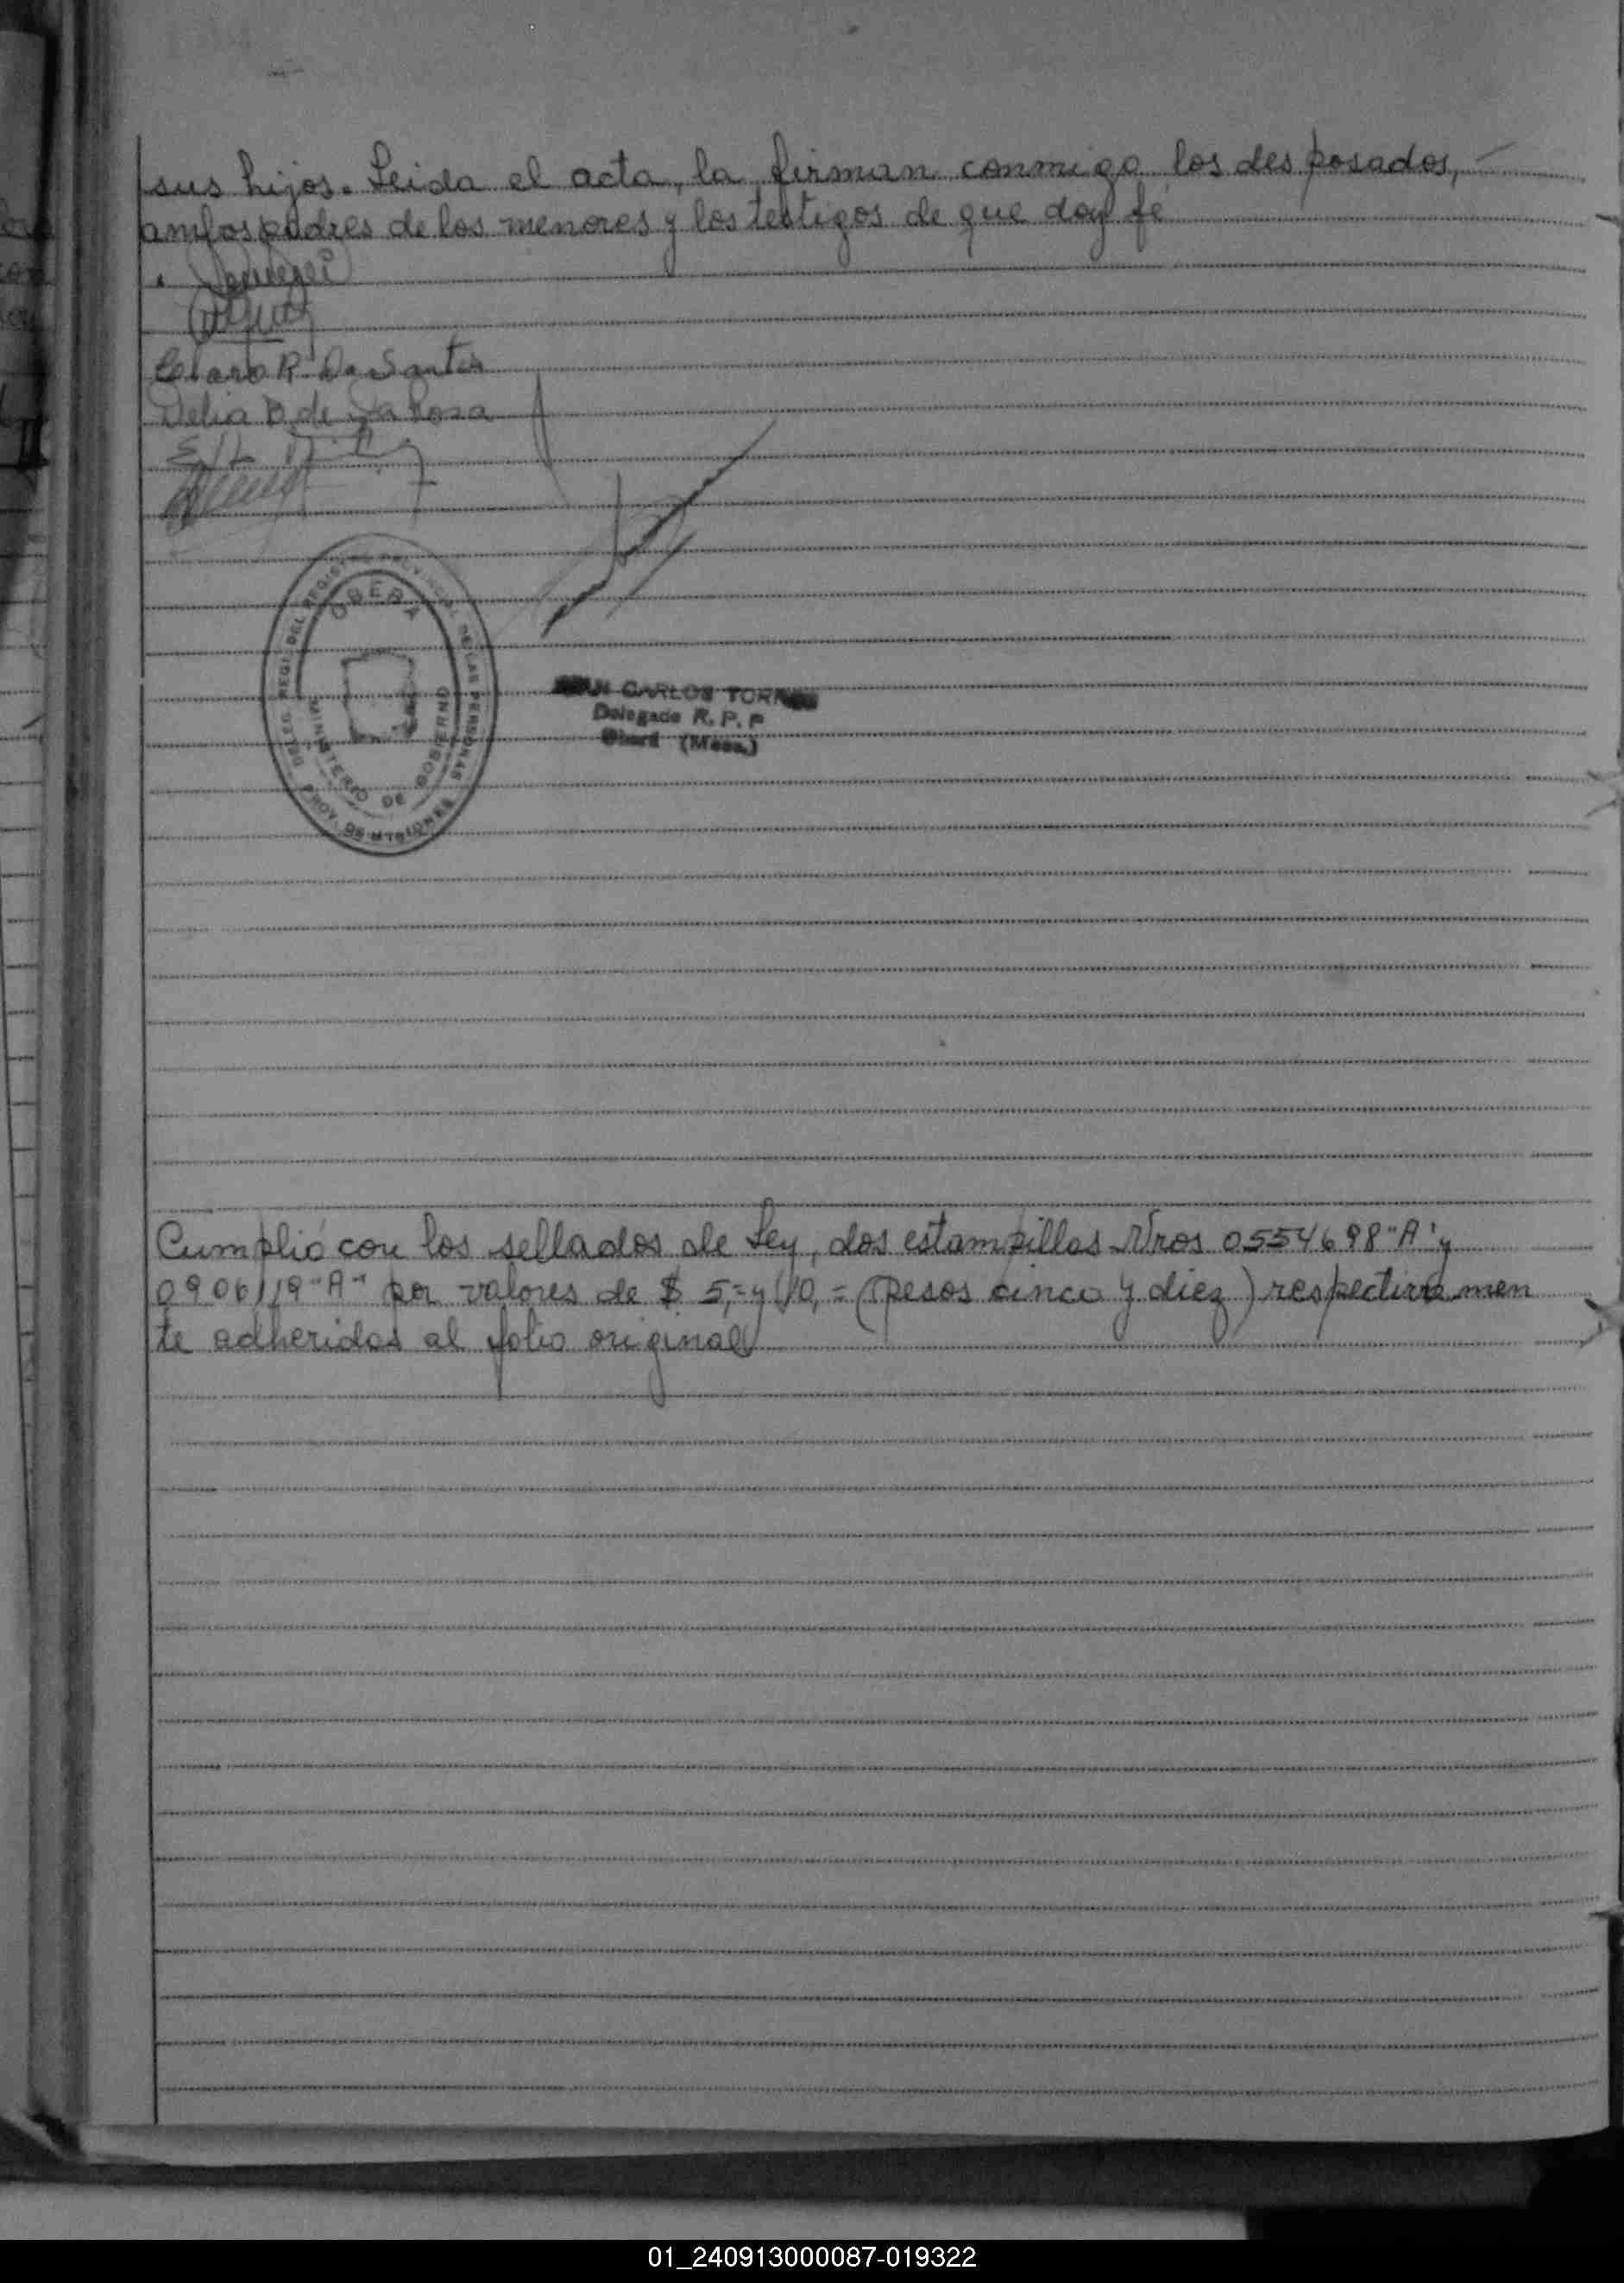 sus hijos. Leida el acta, la firman conmigo los desposados,
ambos padres de los menores y los testigos de que doy fé
Claro R. Da Santos
Delia B. de Da Rosa
DELEG. REGL. DEL REGISTRO PROVINCIAL DE LAS PERSONAS
OBERA
MINISTERIO DE GOBIERNO
PROV. DE MISIONES
CARLOS TORRES
Delegado R. P. P
Oberá (Mnes.)
Cumplió con los sellados de Ley, dos estampillas Nros 0554698 "A" y
0906119 "A" por valores de $ 5,= y 10,= (pesos cinco y diez) respectivamen
te adheridos al folio original
01_240913000087-019322